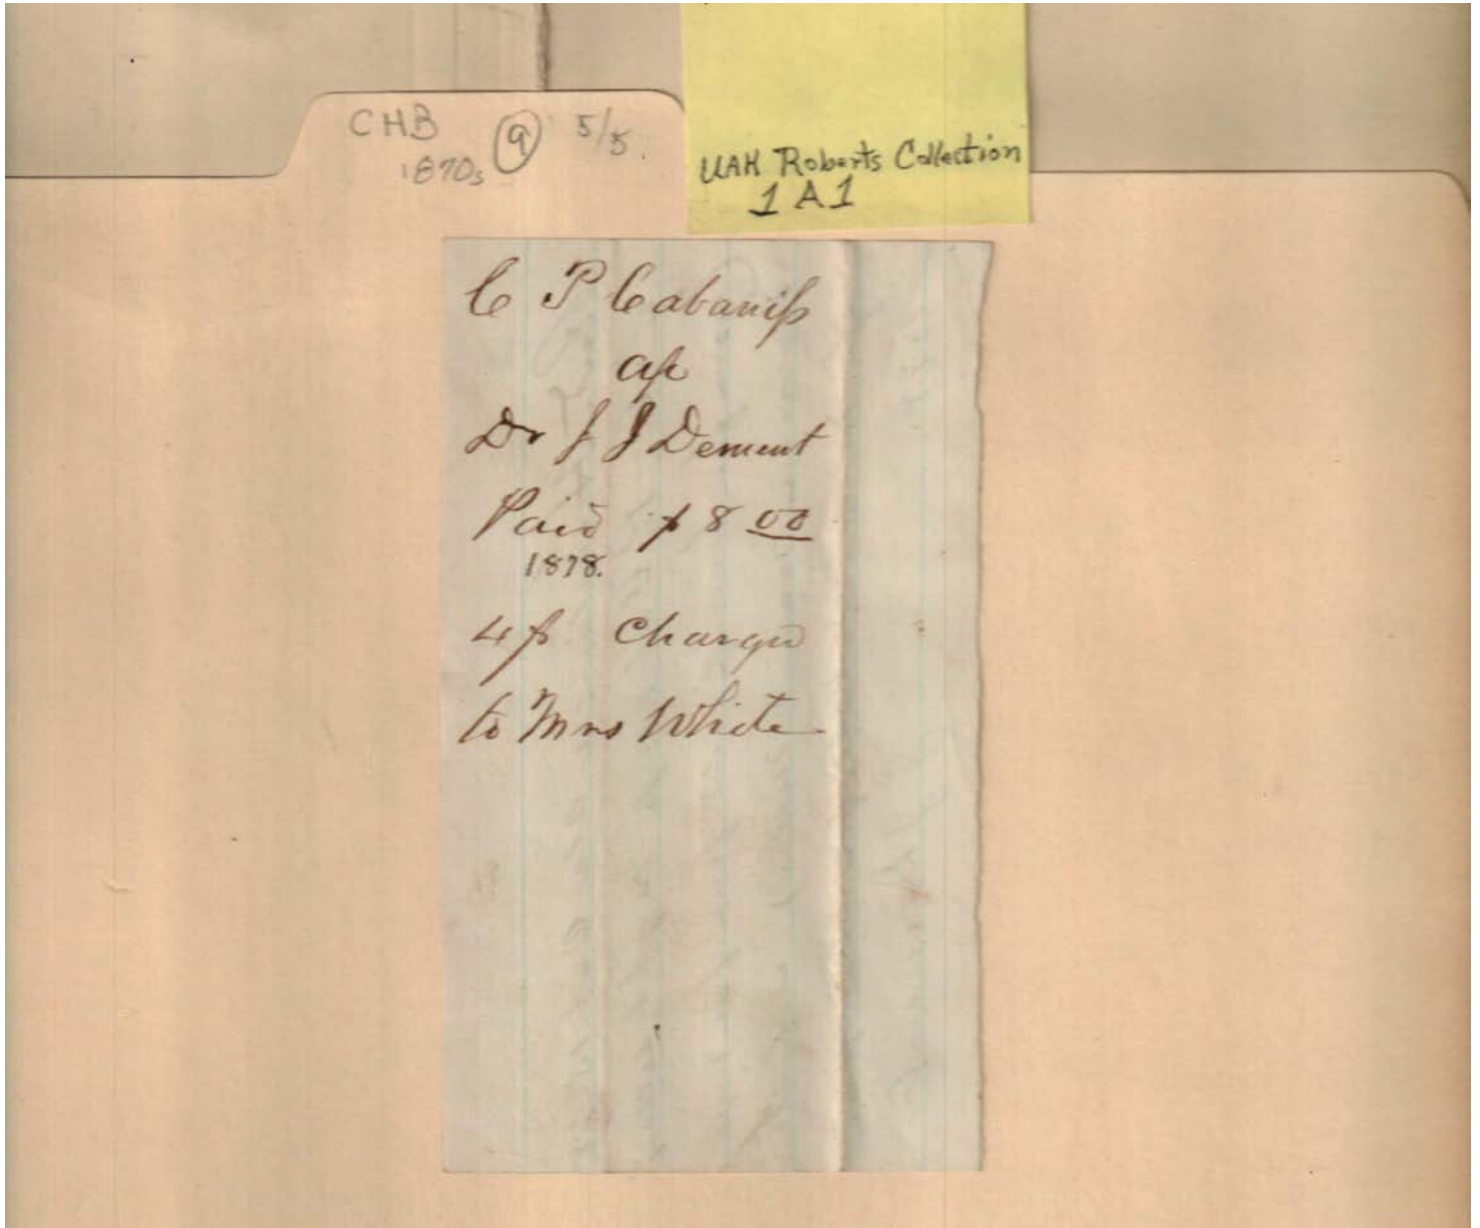 CHB 9 5/5.
1870s
UAH Roberts Collection
1 A 1
C P Cabaniss
a/c
Dr J J Dement
Paid $ 8 00
1878.
4 $ Charged
to Mrs White